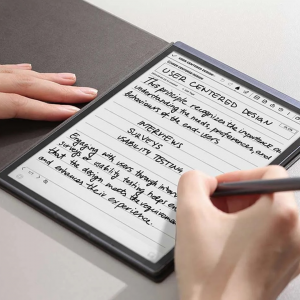 USER CENTERED DESIGN
This principle recognizes the importance of
understanding the needs, preferences, and
behaviours of the end users.
INTERVIEWS
SURVEYS
USABILITY TESTING
Engaging with users through interviews
surveys & usability testing helps
that the design meets the requirements
and enhances their experience.